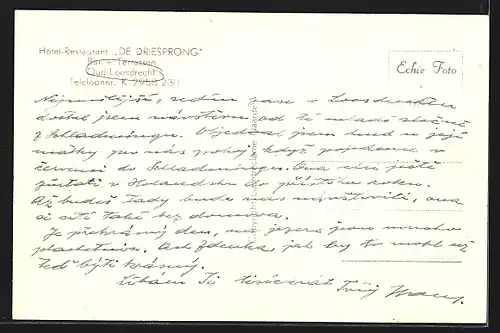 Hotel-Restaurant „DE DRIESPRONG"
Bar - Terrassen
Oud Loosdrecht
Telefoonnr. K 2958-230
Echte Foto
Nejmilejší, sedím zase v Loosdrechtu
dostal jsem návštěvu od té mladé slečně
z Schladmingu. Objednal jsem hned u její
matky pro nás pokoj když pojedeme v
červenci do Schladmingu. Ona chce ještě
zůstati v Holandsku do příštího roku.
Až budeš tady bude nás navštívit, ona
si cítí také bez domova.
Je překrásný den, na jezeru jsou mnoho
plachetnic. Ach Zdenka, jak by to mohl už
teď býti krásný.
Líbám Tě tisíckrát Tvůj